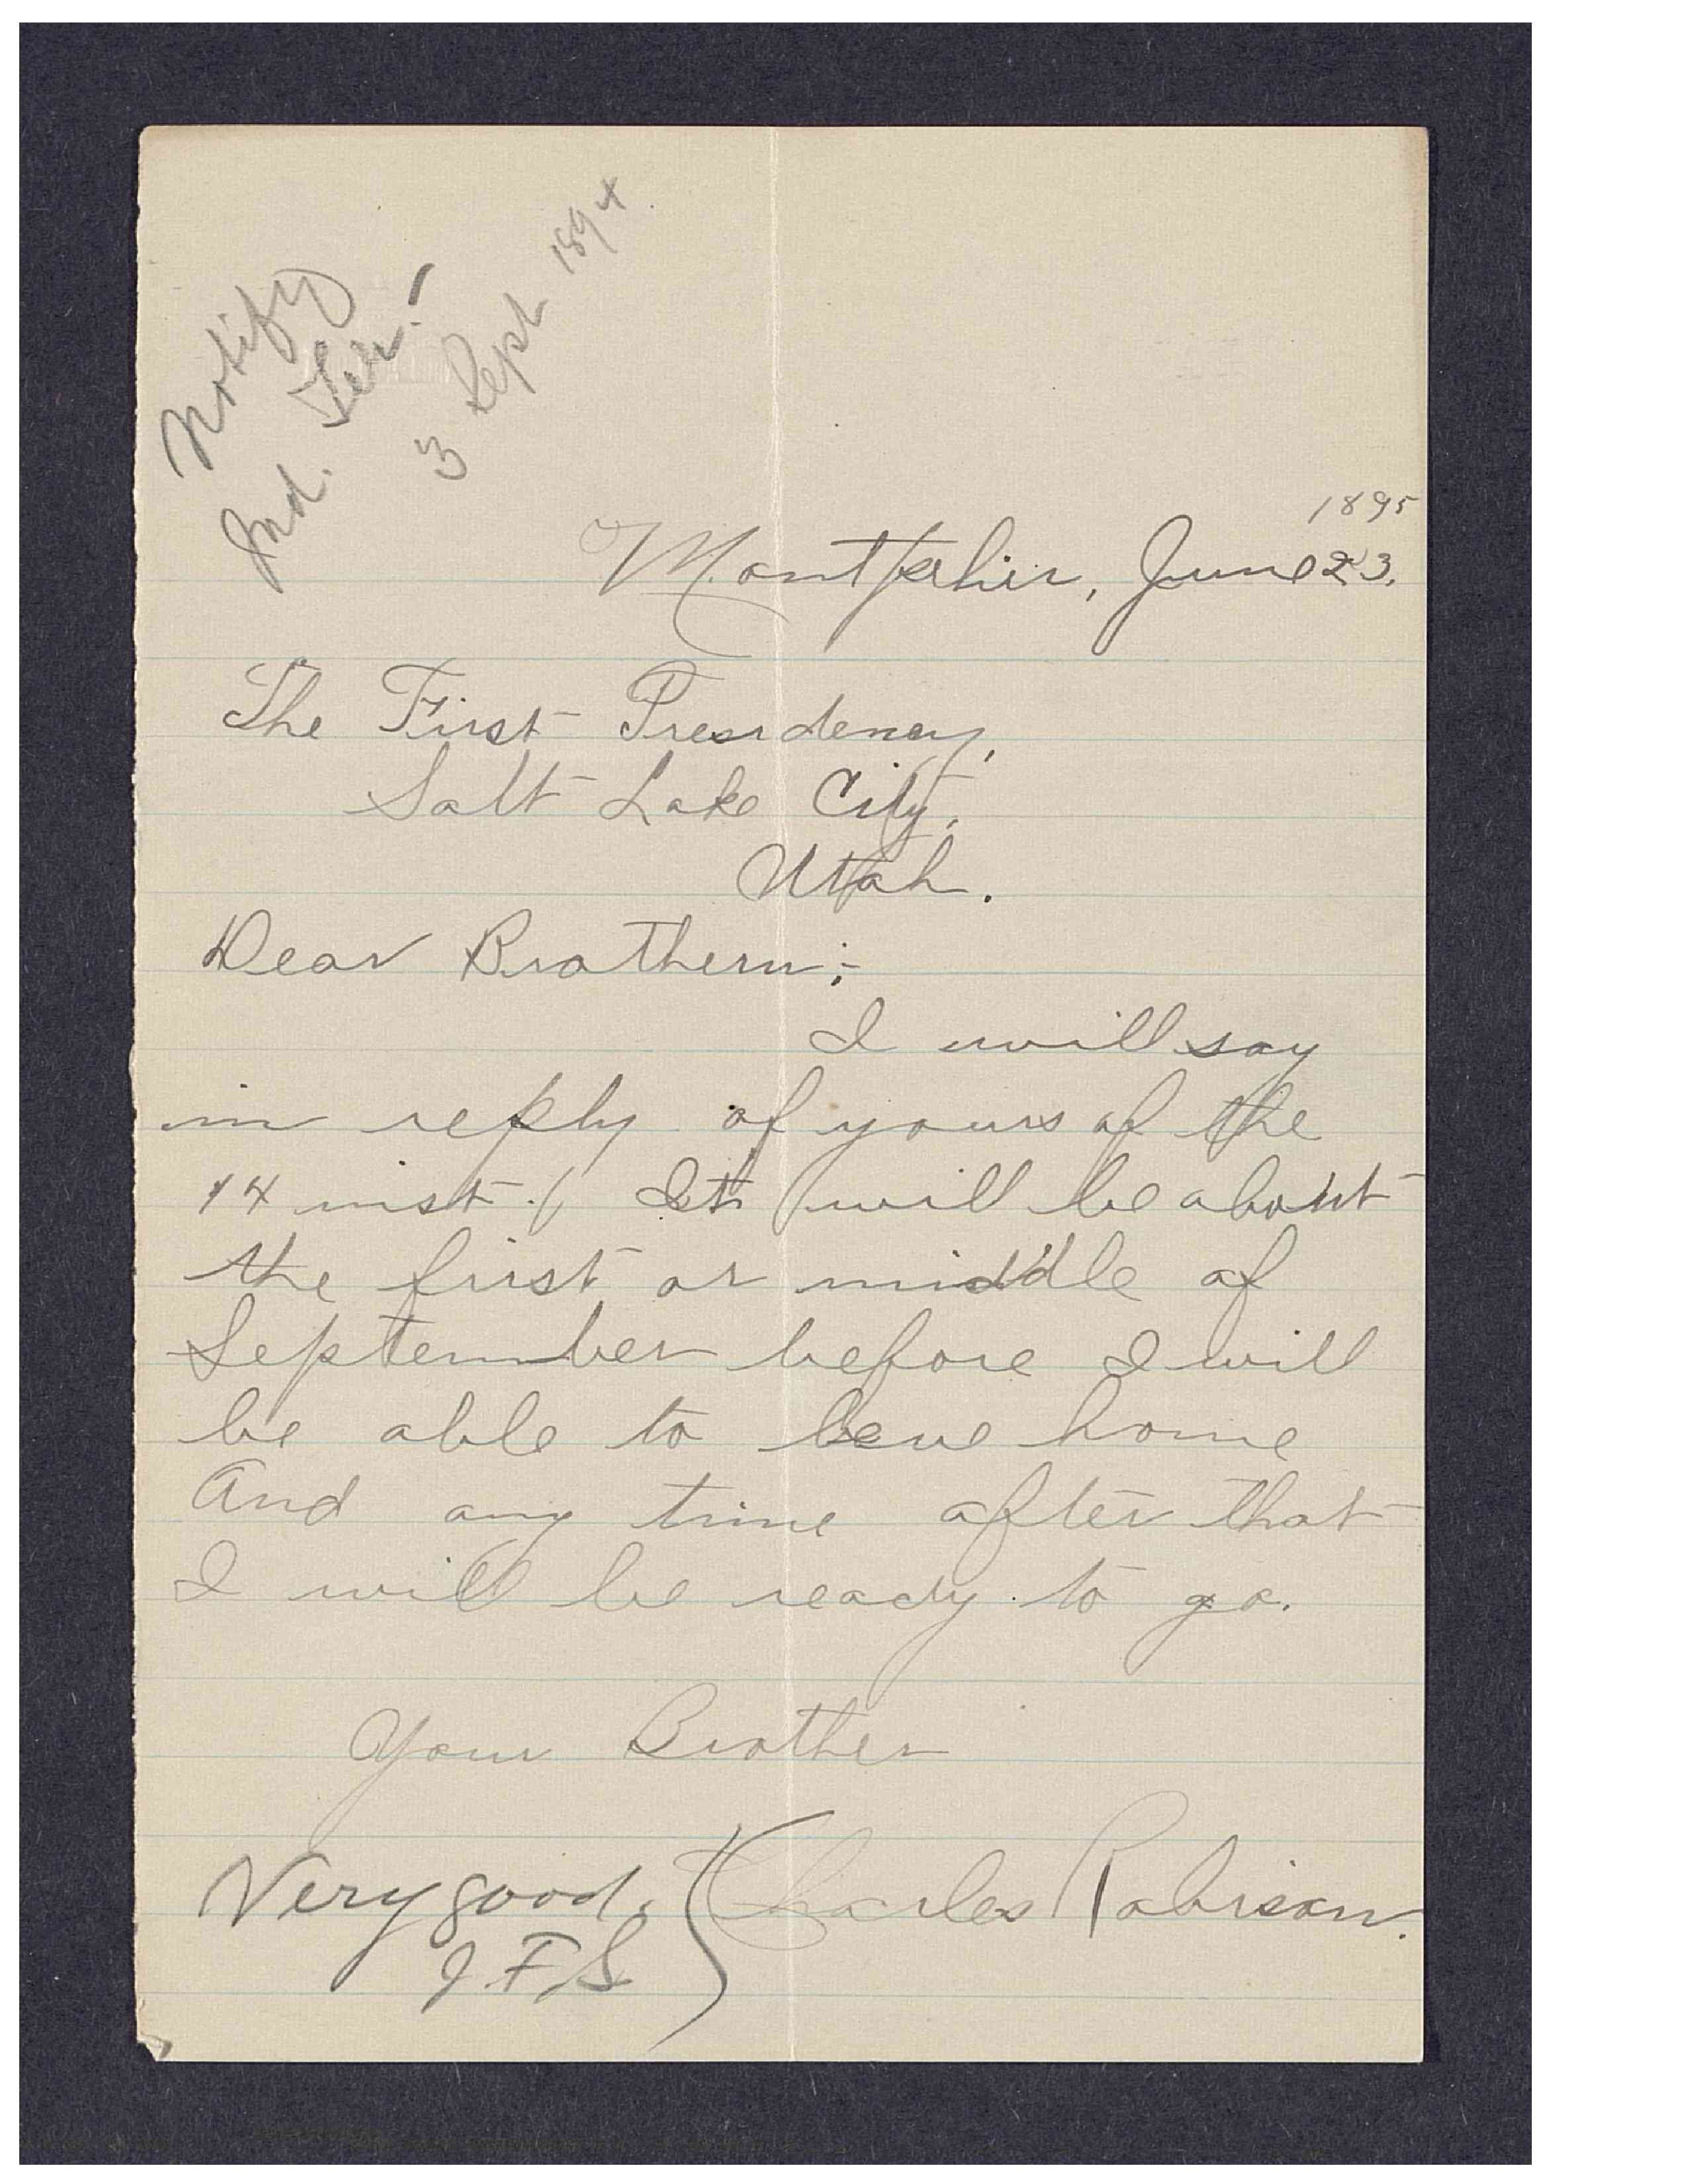 Notify
Ind. Ter!
3 Sept 1894
1895
Montpelier, June 23.
The First Presidency,
Salt Lake City,
Utah.
Dear Brothern;-
I will say
in reply of yours of the
14 inst. It will be about
the first or middle of
September before I will
be able to leve home
And any time after that
I will be ready to go.
Your Brother
Charles Robison.
Very good.
J. F. S